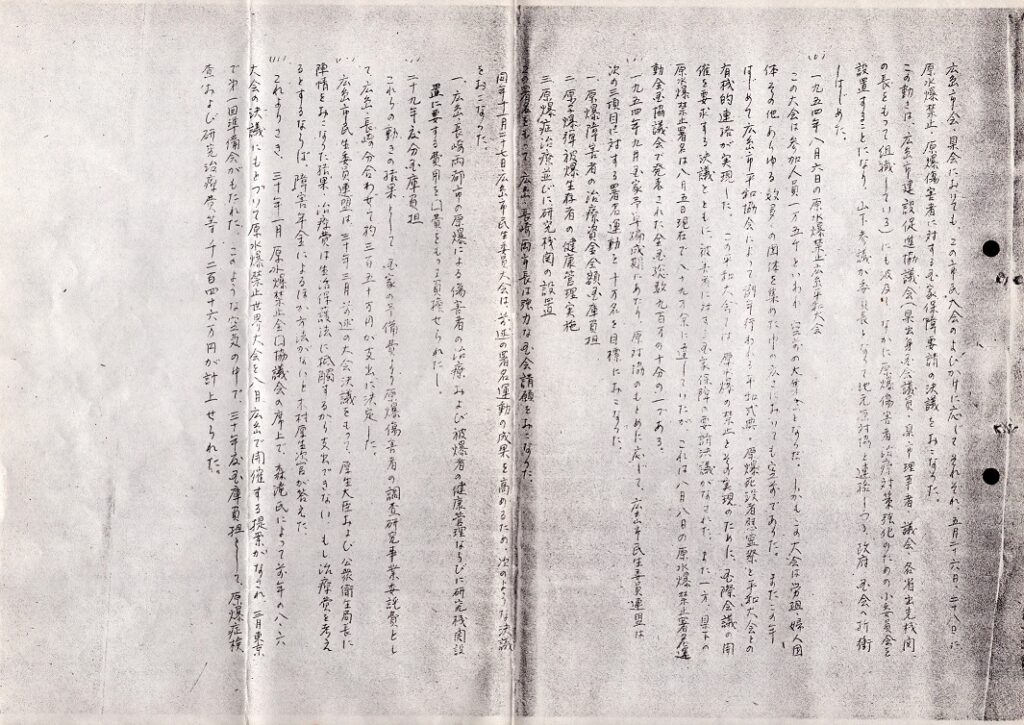 広島市会、県会においても、この市民大会のよびかけに応じてそれぞれ、五月二十六日、二十八日に
原水爆禁止、原爆傷害者に対する国家保障要請の決議をおこなった。
この動きは、広島市建設促進協議会(県出身国会議員、県、市理事者、議会、各省出先機関
の長をもって組織している)にも波及し、なかに原爆傷害者治療対策強化のための小委員会を
設置することになり、山下参議が委員長となって地元原対協と連絡しつつ、政府、国会の折衝
をはじめた。
一九五四年八月六日の原水爆禁止広島平和大会
この大会は参加人員一万五千といわれ、空前の大集会となった。しかもこの大会は労組、婦人団
体、その他あらゆる数多くの団体を集めた中の広さにおいても空前であった。またこの年
はじめて広島市平和協会によって例年行われる平和式典、原爆死没者慰霊祭と平和大会との
有機的連絡が実現した。この平和大会では原水爆の禁止とその実現のために、国際会議の開
催を要求する決議とともに、被害者に対する国家保障の要請決議がなされた。また一方、県下の
原水爆禁止署名は八月五日現在で八十九万余に達していたが、これは八月八日の原水爆禁止署名運
動全国協議会で発表された全国総数九百万の十分の一である。
一九五四年九月、国家予算編成期にあたり、原対協のもとめに応じて、広島市民生委員連盟は
次の三項目に対する署名運動を十万名を目標におこなった。
一、原爆障害者の治療資金全額国庫負担
二、原子爆弾被爆生存者の健康管理実施
三、原爆症治療並びに研究機関の設置
この署名をもって広島、長崎両市長は強力な国会請願をおこなった。
同年十一月二十七日広島市民生委員大会は前述の署名運動の成果を高めるため、次のような決議
をおこなった。
一、広島、長崎両都市の原爆による傷害者の治療および被爆者の健康管理ならびに研究機関設
置に要する費用を国費をもって負担せられたし。
二十九年度分国庫負担
これらの動きの結果として、国家の予備費より原爆傷害者の調査研究事業委託費とし
て、広島、長崎分合わせて約三百五十万円が支出に決定した。
広島市民生委員連盟は、三十年三月前述の大会決議をもって、厚生大臣および公衆衛生局長に
陳情をおこなった結果、治療費は生活保護法に抵触するから支出できない、もし治療費を考え
るとするならば、障害年金によるほか方法がないと木村厚生次官が答えた。
これよりさき、三十年一月、原水爆禁止全国協議会の席上で、森滝氏によって前年の八・六
大会の決議にもとづいて原水爆禁止世界大会を八月広島で開催する提案がなされ、三月東京
で第一回準備会がもたれた。このような空気の中で、三十年度国庫負担として、原爆症検
査および研究治療費等、千二百四十六万円が計上せられた。